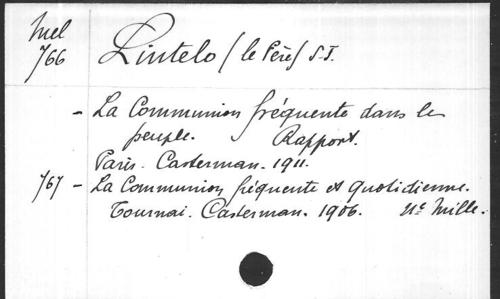 Mel
766 Lintelo (le Père) S.J.
- La Communion fréquente dans le
peuple. Rapport.
Paris. Casterman. 1911.
767 - La Communion fréquente et quotidienne.
Tournai. Casterman. 1906. Mille.